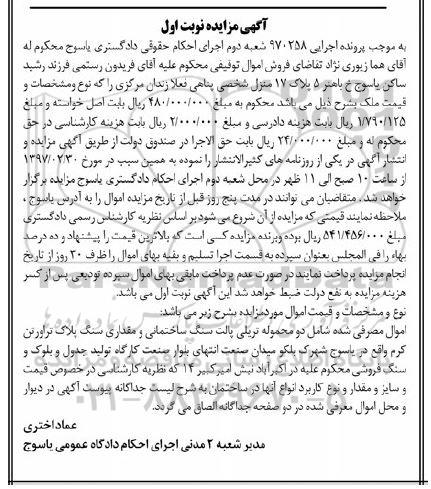 آگهی مزایده نوبت اول
به موجب پرونده اجرایی ۹۷۰۲۵۸ شعبه دوم اجرای احکام حقوقی دادگستری یاسوج محکوم له
آقای هما زیوری نژاد تقاضای فروش اموال توقیفی محکوم علیه آقای فریدون رستمی فرزند رشید
ساکن یاسوج خ باهنر ۵ پلاک ۱۷ منزل شخصی پناهی فعلا زندان مرکزی را که نوع ومشخصات و
قیمت ملک بشرح ذیل می باشد محکوم به مبلغ ۴۸۰/۰۰۰/۰۰۰ ریال بابت اصل خواسته و مبلغ
۱/۷۹۰/۱۲۵ ریال بابت هزینه دادرسی و مبلغ ۲/۰۰۰/۰۰۰ ریال بابت هزینه کارشناسی در حق
محکوم له و مبلغ ۲۴/۰۰۰/۰۰۰ ریال بابت حق الاجرا در صندوق دولت از طریق آگهی مزایده و
انتشار آگهی در یکی از روزنامه های کثیرالانتشار را نموده به همین سبب در مورخ ۱۳۹۷/۰۲/۳۰
از ساعت ۱۰ صبح الی ۱۱ ظهر در محل شعبه دوم اجرای احکام دادگستری یاسوج مزایده برگزار
خواهد شد. متقاضیان می توانند در مدت پنج روز قبل از تاریخ مزایده اموال را به آدرس یاسوج ،
ملاحظه نمایند قیمتی که مزایده از آن شروع می شود بر اساس نظریه کارشناس رسمی دادگستری
مبلغ ۵۴۱/۴۵۶/۰۰۰ ریال بوده وبرنده مزایده کسی است که بالاترین قیمت را پیشنهاد و ده درصد
بهاء را فی المجلس بعنوان سپرده به قسمت اجرا تسلیم و بقیه بهای اموال را ظرف ۲۰ روز از تاریخ
انجام مزایده پرداخت نمایند در صورت عدم پرداخت مابقی بهای اموال سپرده تودیعی پس از کسر
هزینه مزایده به نفع دولت ضبط خواهد شد این آگهی نوبت اول می باشد.
نوع و مشخصات و قیمت اموال موردمزایده بشرح زیر می باشد:
اموال مصرفی شده شامل دو محموله تریلی پالت سنگ ساختمانی و مقداری سنگ پلاک تراورتن
کرم واقع در یاسوج شهرک بلکو میدان صنعت انتهای بلوار صنعت کارگاه تولید جدول و بلوک و
سنگ فروشی محکوم علیه در اکبرآباد نبش امیرکبیر ۱۴ که نظریه کارشناسی در خصوص قیمت
و سایز و مقدار و نوع کاربرد انواع آنها در ساختمان به شرح لیست جداگانه پیوست آگهی در دیوار
و محل اموال معرفی شده در دو صفحه جداگانه الصاق می گردد.
عماد اختری
مدیر شعبه ۲ مدنی اجرای احکام دادگاه عمومی یاسوج